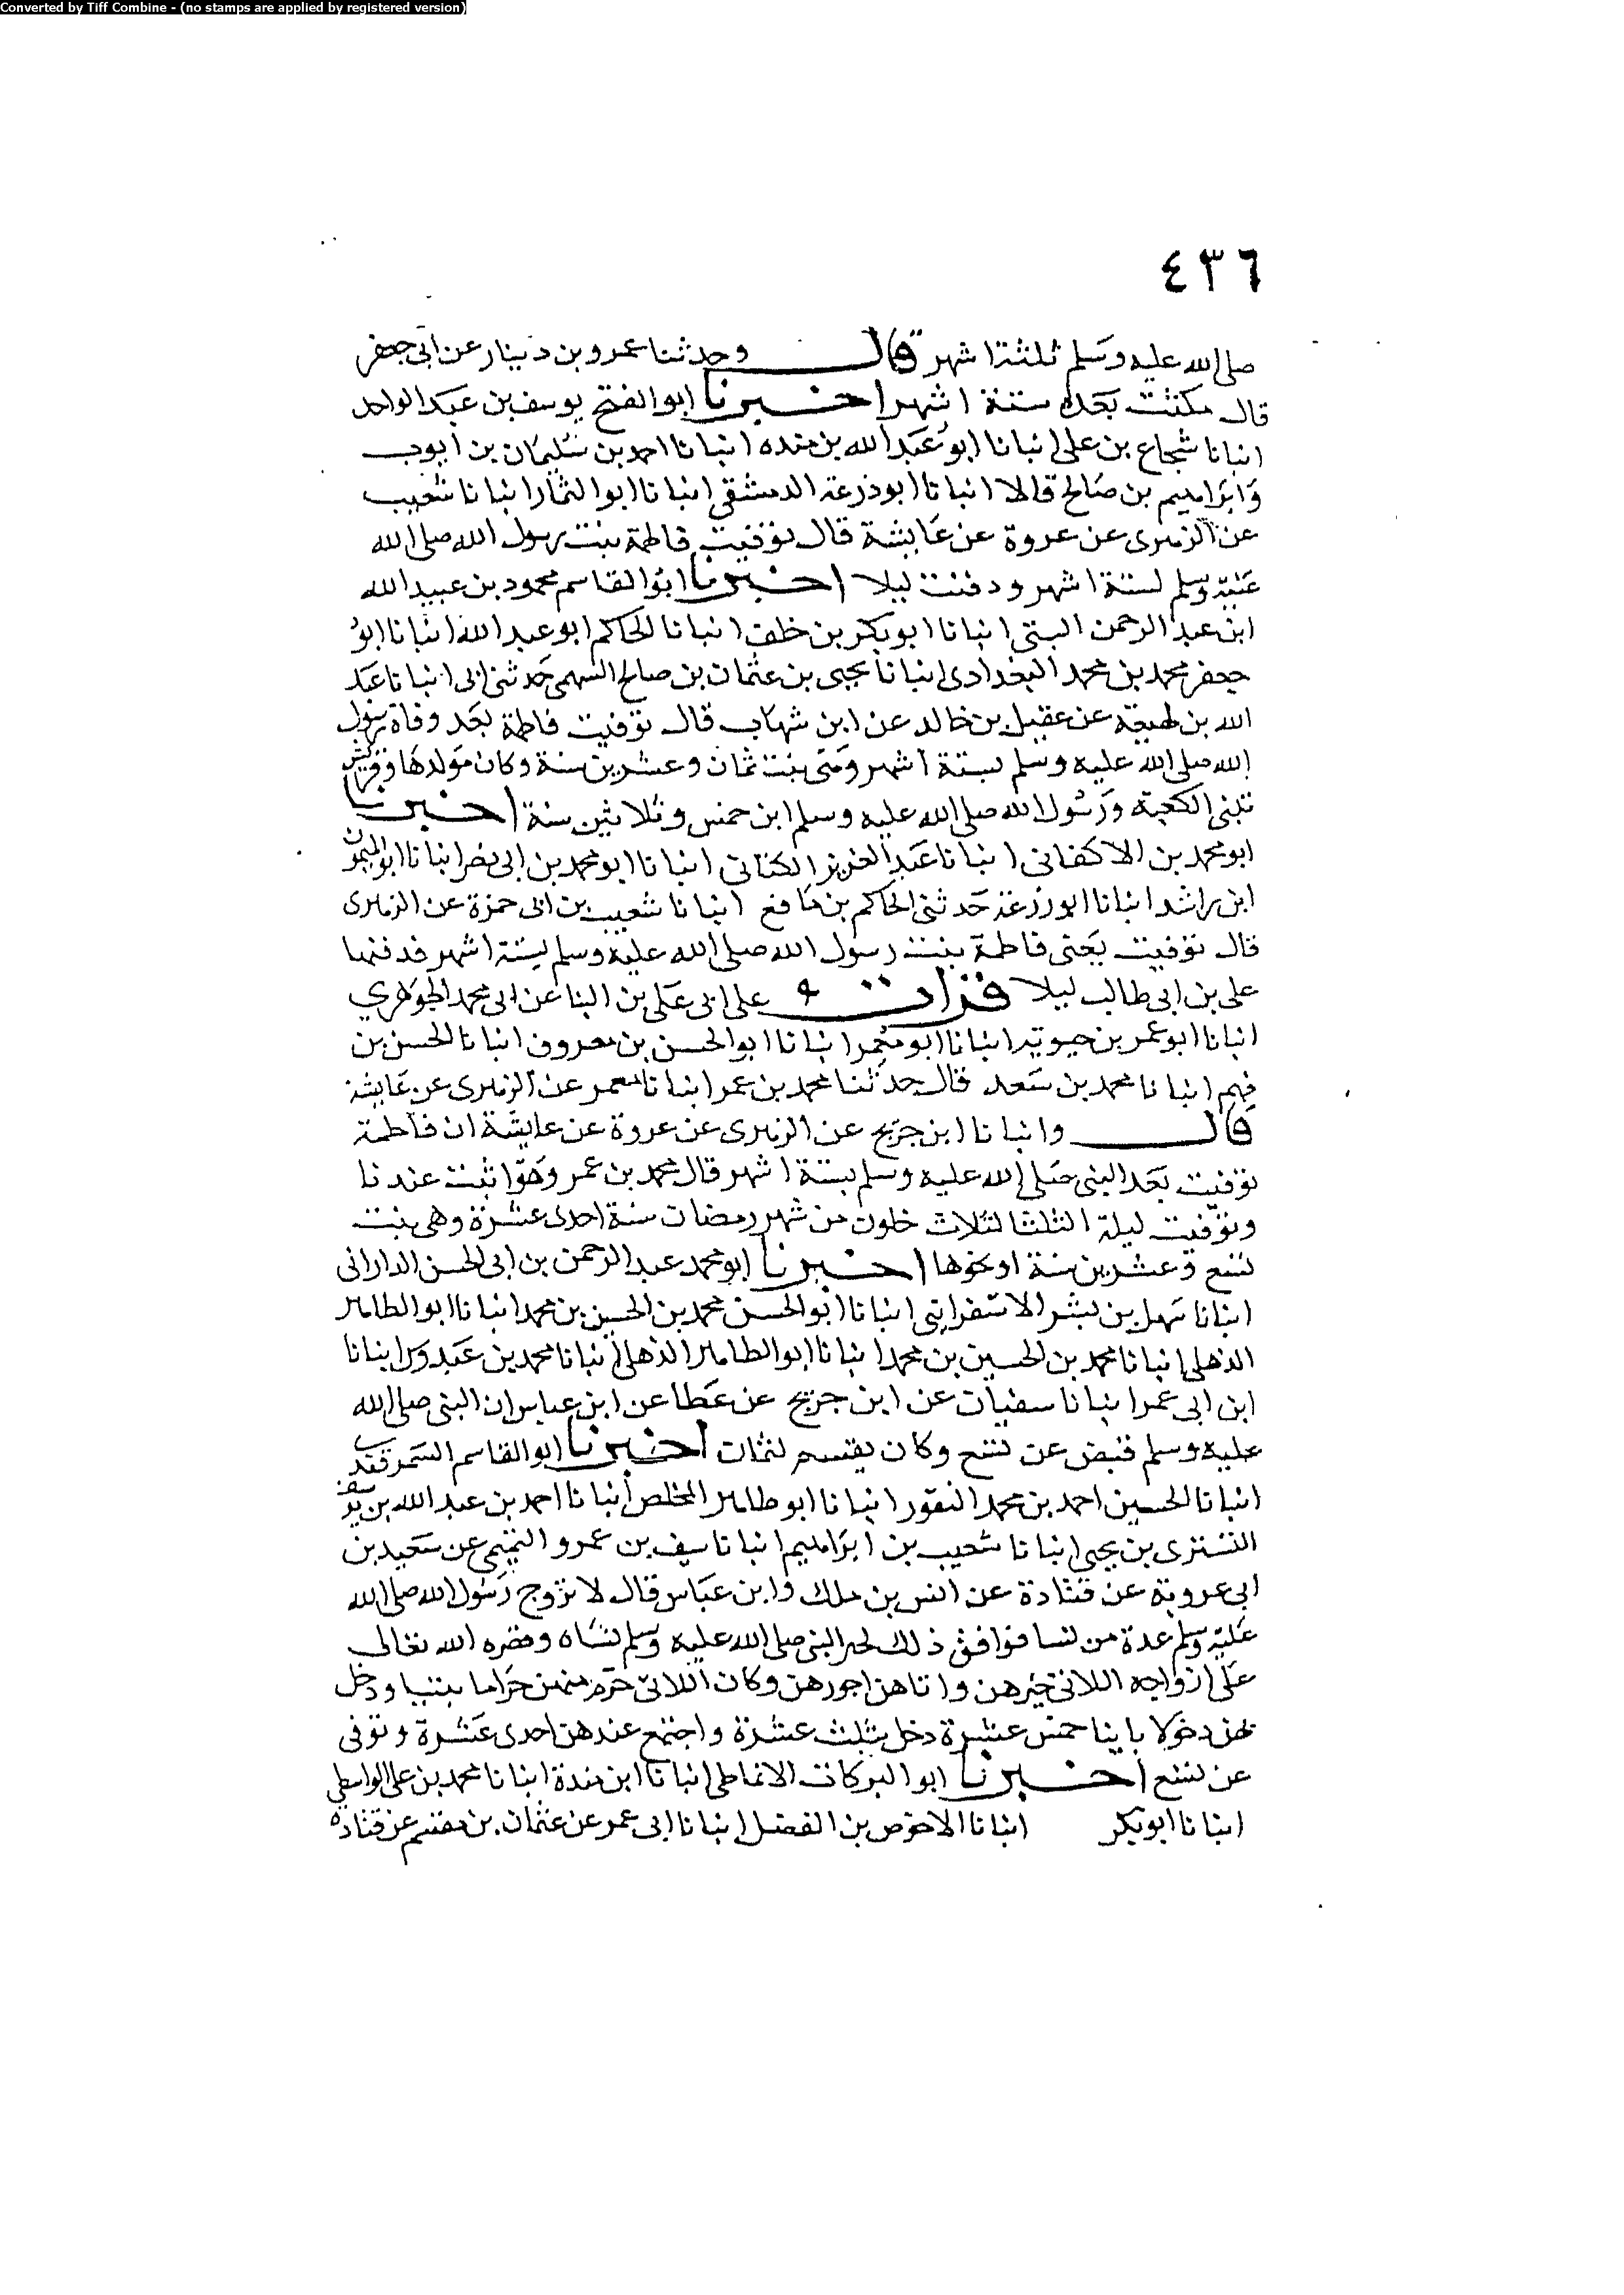 Converted by Tiff Combine - (no stamps are applied by registered version)
٤٣٦
صلى الله عليه وسلم ثلثة اشهر قال وحدثنا عمرو بن دينار عن ابى جعفر
قال مكثت بعده ستة اشهر اخبرنا ابو الفتح يوسف بن عبد الواحد
انبانا شجاع بن على انبانا ابو عبد الله بن منده انبانا احمد بن سليمان بن ايوب
وابراهيم بن صالح قالا انبانا ابو ذرعة الدمشقى انبانا ابو اليمان انبانا شعيب
عن الزهرى عن عروة عن عايشة قال توفيت فاطمة بنت رسول الله صلى الله
عليه وسلم لستة اشهر ودفنت ليلا اخبرنا ابو القاسم محمود بن عبيد الله
ابن عبد الرحمن البستى انبانا ابو بكر بن خلف انبانا الحاكم ابو عبد الله انبانا ابو
جعفر محمد بن محمد البغدادى انبانا يحيى بن عثمان بن صالح السهمى حدثنى ابى انبانا عبد
الله بن لهيعة عن عقيل بن خالد عن ابن شهاب قال توفيت فاطمة بعد وفاة رسول
الله صلى الله عليه وسلم بستة اشهر وهى بنت ثمان وعشرين سنة وكان مولدها وقريش
تبنى الكعبة ورسول الله صلى الله عليه وسلم ابن خمس وثلاثين سنة اخبرنا
ابو محمد بن الاكفانى انبانا عبد العزيز الكتانى انبانا ابو محمد بن ابى نصر انبانا ابو الميمون
ابن راشد انبانا ابو زرعة حدثنى الحاكم بن نافع انبانا شعيب بن ابى حمزة عن الزهرى
قال توفيت يعنى فاطمة بنت رسول الله صلى الله عليه وسلم لستة اشهر فدفنها
على بن ابى طالب ليلا قرات على ابى على بن البنا عن ابى محمد الجوهري
انبانا ابو عمر بن حيويه انبانا ابو معمر انبانا ابو الحسن بن معروف انبانا الحسن بن
فهم انبانا محمد بن سعد قال حدثنا محمد بن عمر انبانا معمر عن الزهرى عن عايشة
قال وانبانا ابن جريج عن الزهرى عن عروة عن عايشة ان فاطمة
توفيت بعد النبى صلى الله عليه وسلم بستة اشهر قال محمد بن عمر وهوا ثبت عندنا
وتوفيت ليلة الثلثا لثلاث خلون من شهر رمضان سنة احدى عشرة وهى بنت
تسع وعشرين سنة او نحوها اخبرنا ابو محمد عبد الرحمن بن ابى الحسن الدارانى
انبانا سهل بن بشر الاسفراينى انبانا ابو الحسن محمد بن الحسين بن محمد انبانا ابو الطاهر
الذهلى انبانا محمد بن الحسين بن محمد انبانا ابو الطاهر الذهلى انبانا محمد بن عبدوس انبانا
ابن ابى عمر انبانا سفيان عن ابن جريج عن عطا عن ابن عباس ان النبى صلى الله
عليه وسلم قبض عن تسع وكان يقسم لثمان اخبرنا ابو القاسم السمرقندى
انبانا الحسين احمد بن محمد النقور انبانا ابو طاهر المخلص انبانا احمد بن عبد الله بن يوسف
التسترى بن يحيى انبانا شعيب بن ابراهيم انبانا سيف بن عمرو التميمى عن سعيد بن
ابى عروبة عن قتادة عن انس بن ملك وابن عباس قال لا تزوج رسول الله صلى الله
عليه وسلم عدة من نسا فوافق ذلك النبى صلى الله عليه وسلم نساه الله تعالى
على ازواجه اللاتى خيرهن واتاهن اجورهن وكان اللاتى حرم منهن حراما ودخل
بهن دخولا خمس عشرة دخل بثلث عشرة واجتمع عندهن احدى عشرة وتوفى
عن تسع اخبرنا ابو البركات الانماطى انبانا ابن مندة انبانا محمد بن على الواسطى
انبانا ابو بكر انبانا الاحوص بن الفضل انبانا ابى عمر عن عثمان بن مقسم عن قتاده